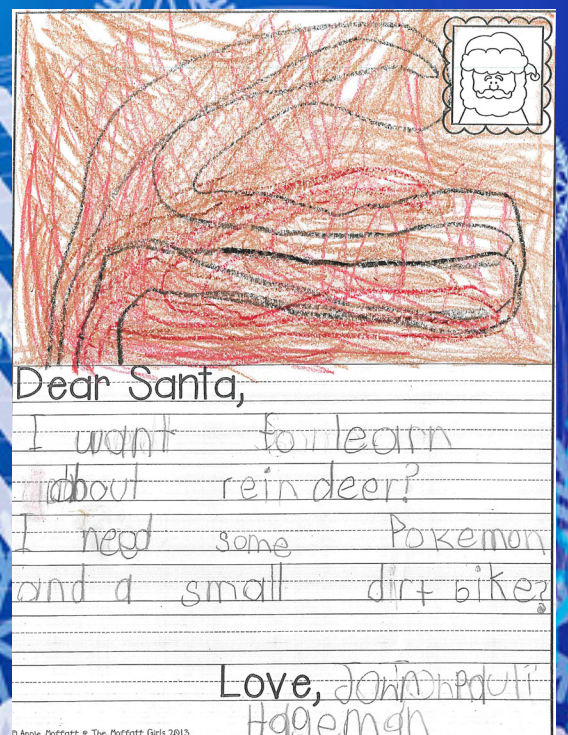 Dear Santa,
I want to learn
about reindeer?
I need some Pokemon
and a small dirt bike?
Love,
Hageman
© Annie Moffatt @ The Moffatt Girls 2013